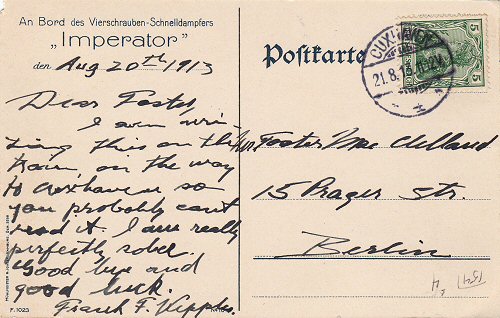 An Bord des Vierschrauben-Schnelldampfers
„Imperator”
den Aug 20th 1913
Dear Foster,
I am wri-
ting this on the
train, on the way
to Cuxhaven so
you probably can't
read it. I am really
perfectly sober.
Good bye and
good luck.
Frank F.
F. 1023
Postkarte
CUXHAVEN
21.8.13
5
5
Foster Mac Clelland
15 Prager Str.
Berlin